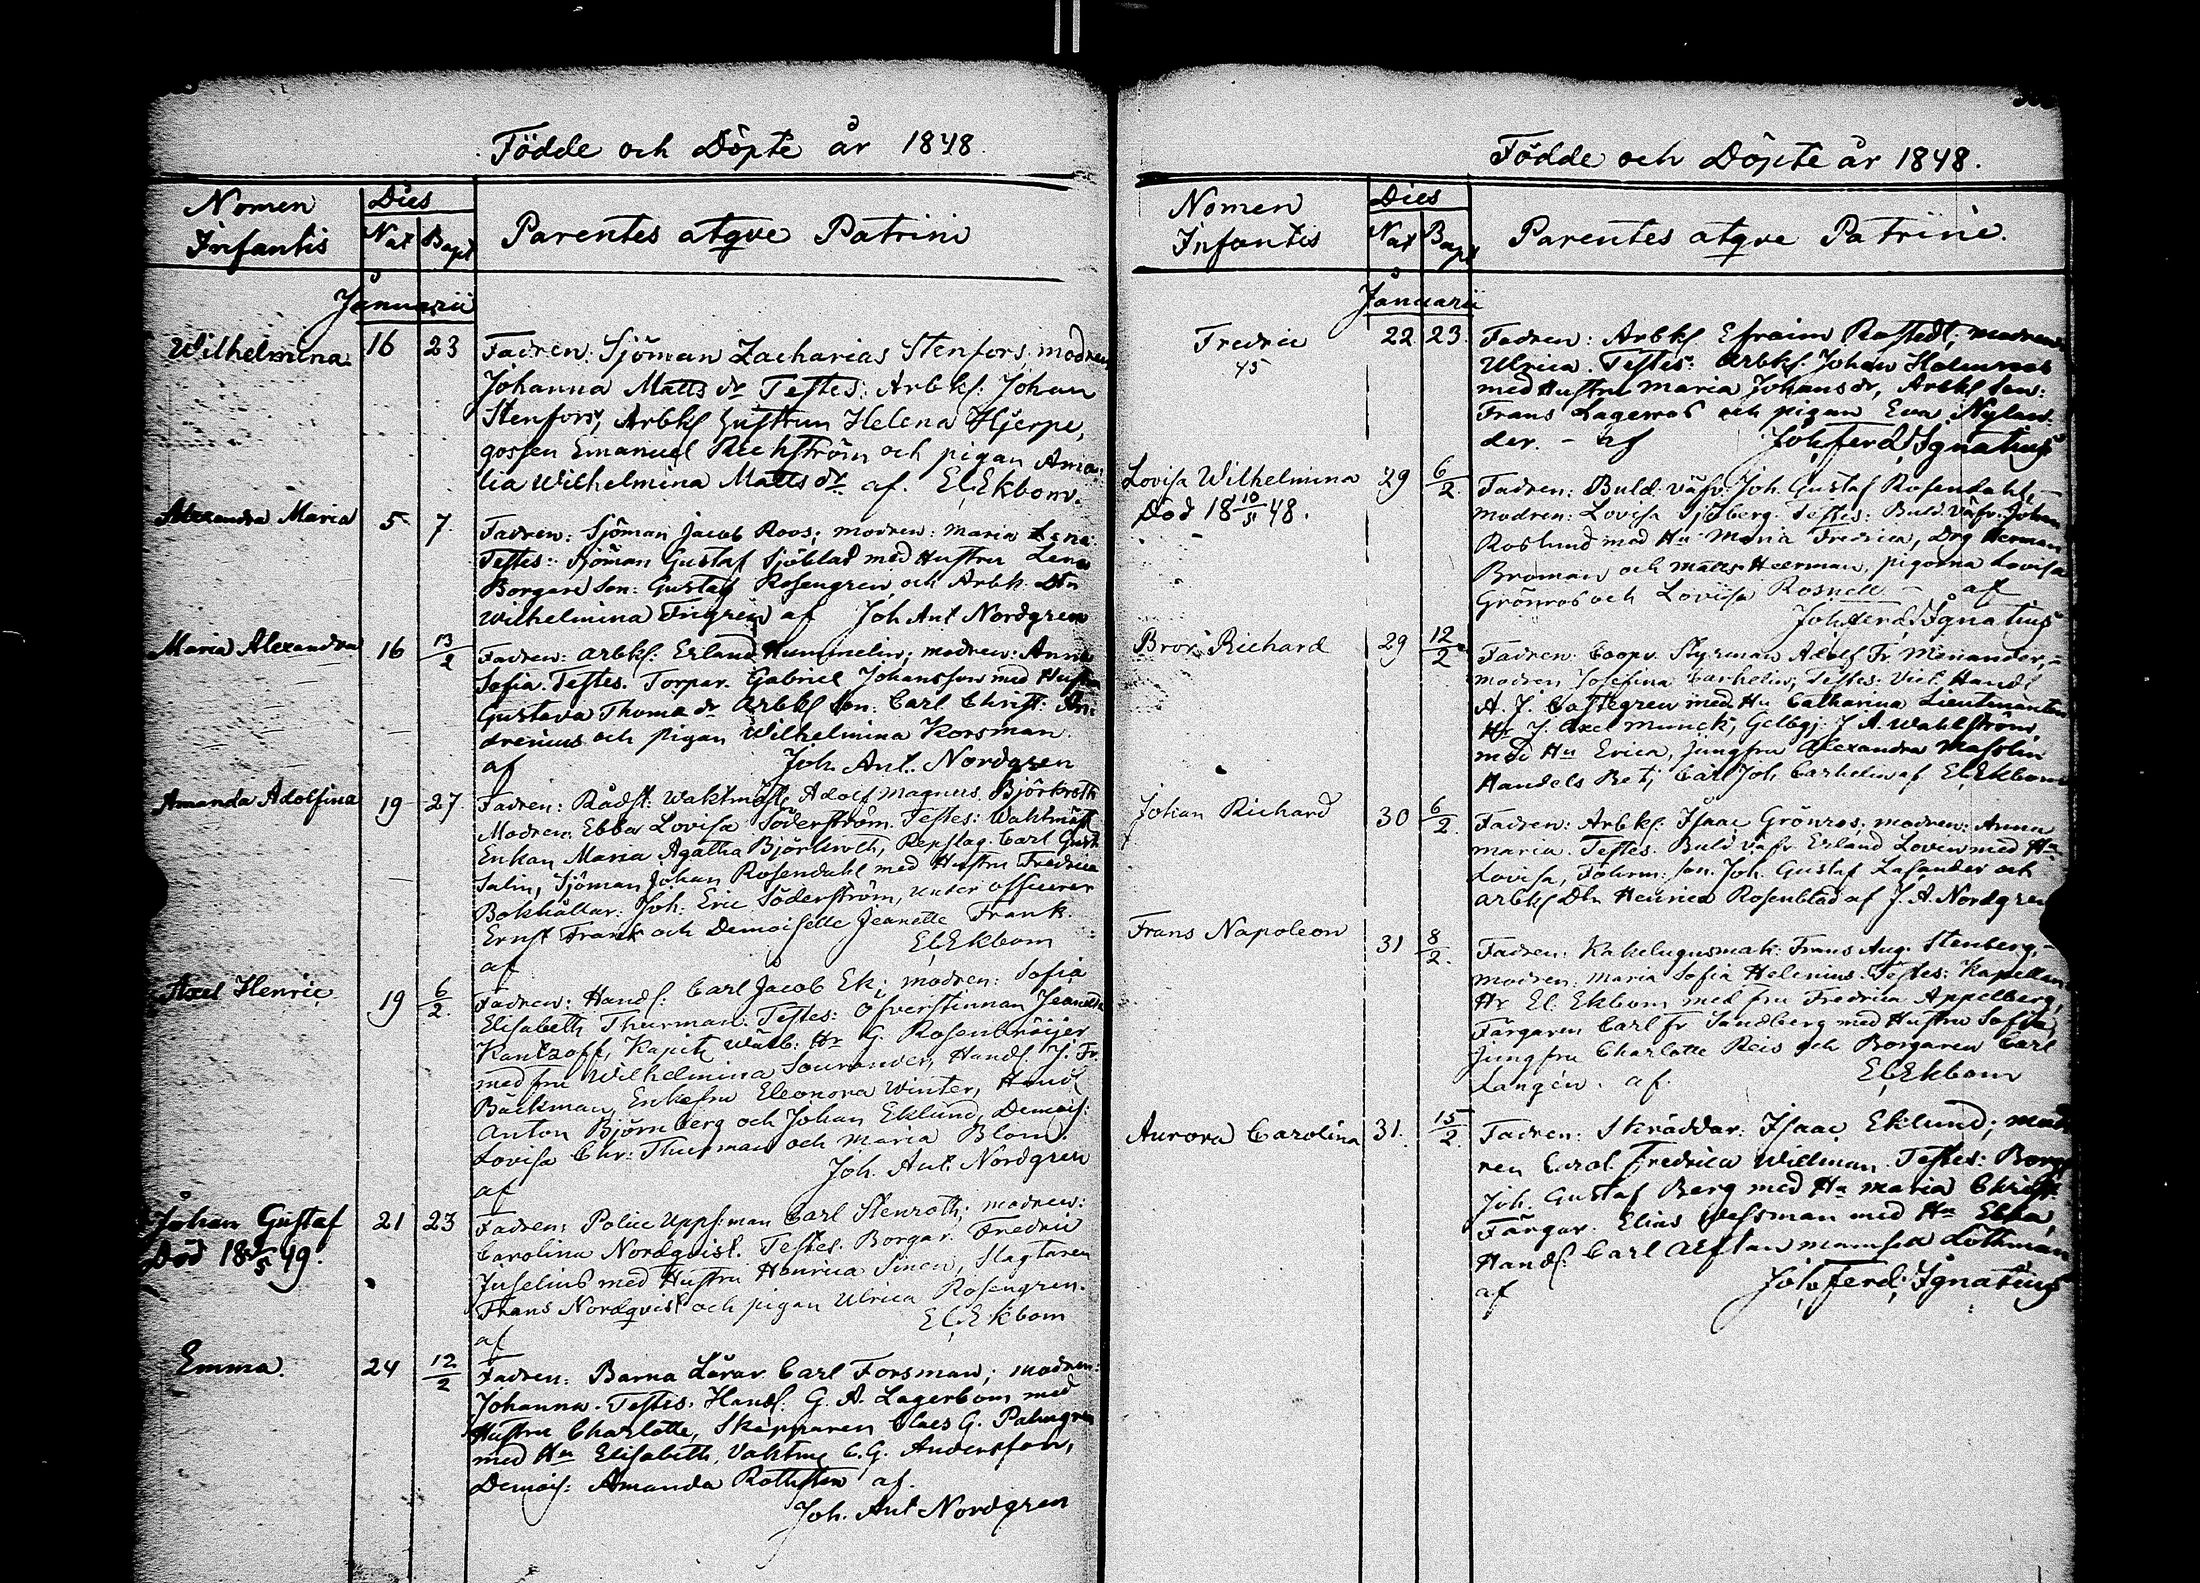 Födde och Döpte år 1848.
Nomen Infantis
Dies
Nat Bapt
Parentes atqve Patrini
Januarii
Wilhelmina 16 23 Fadren: Sjöman Zacharias Stenfors, modren
Johanna Matts dr Testes: Arbkf. Johan
Stenfors, Arbkf hustrun Helena Hjerpe,
gossen Emanuel Rechström och pigan Ama-
lia Wilhelmina Matts dr af. El. Ekbom.
Alexandra Maria 5 7 Fadren: Sjöman Jacob Roos; modren: Maria Lena
Testes: Sjöman Gustaf Sjöblad med Hustru Lena
Borgare Son: Gustaf Rosengren och Arbk. Dtr
Wilhelmina Frigren af Joh Ant Nordgren
Maria Alexandra 16 13/2 Fadren: Arbkf. Erland Hummelin; modren: Anna
Sofia. Testes. Torpar. Gabriel Johansson med Hustru
Gustava Thoma dr Arbkf Son: Carl Christ:
och pigan Wilhelmina Korsman.
af Joh. Ant. Nordgren
Amanda Adolfina 19 27 Fadren: Rådst: Waktmäst. Adolf Magnus Björkroth
Modren: Ebba Lovisa Söderström. Testes: Waktmäst
Enkan Maria Agatha Björkroth, Repslag. Carl Gust.
Salin, Sjöman Johan Rosendahl med Hustru Fredrica
Bokhållar: Joh: Eric Söderström, under officeren
Ernst Frank och Demoiselle Jeanette Frank.
af El. Ekbom
Axel Henric 19 6/2. Fadren: Handl: Carl Jacob Ek; modren: Sofia
Elisabeth Thurman. Testes: Öfverstinnan Jeanette
Kantzoff, Kapit. Wälb: Hr G. Rosenbröijer
med fru Wilhelmina Sourander, Handl. J. Fr.
Bäckman, Enkefru Eleonora Winter, Handl
Anton Björnberg och Johan Eklund, Demois:
Lovisa Chr: Thurman och Maria Blom.
af Joh. Ant. Nordgren
Johan Gustaf 21 23 Fadren: Police Uppf:man Carl Stenroth; modren:
Död 18 /5 49. Carolina Nordqvist. Testes: Borgar. Fredric
Juselius med Hustru Henrica Sinen, Slagtaren
Frans Nordqvist och pigan Ulrica Rosengren.
af El. Ekbom
Emma. 24 12/2 Fadren: Barna Lärar Carl Forsman; modren:
Johanna. Testes. Handl. G. A. Lagerbom med
Hustru Charlotte, Skepparen Claes G. Palmgren
med Hu Elisabeth, Vaktm C. G. Andersson,
Demois: Amanda Rothsten af.
Joh. Ant Nordgren
Födde och Döpte år 1848.
Nomen Infantis
Dies
Nat Bapt
Parentes atqve Patrini.
Januarii
Fredric 22 23. Fadren: Arbkf Efraim Rostedt, modren
45 Ulrica. Testes: Arbkf. Johan Holmroos
med Hustru Maria Johans dr, Arbkf Son:
Frans Lagerros och pigan Eva Nylan-
der. - af Joh. Ferd. Ignatius
Lovisa Wilhelmina 29 6/2. Fadren: Buld. väfv. Joh. Gustaf Rosendahl,
Död 18 10/5 48. modren: Lovisa Sjöberg. Testes: Buld. väfv. Johan
Roslund med Hu Maria Fredrica, Drg Herman
Broman och Matts Heerman, pigorna Lovisa
Grönros och Lovisa Rosnell - af
Joh. Ferd. Ignatius
Bror Richard 29 12/2 Fadren: Coopv. Styrman Adolf Fr. Menander,
modren Josefina Carhelin; Testes: Vict. Handl
A. J. Castegren med Hu Catharina Lieutnanten
Hr J. Axel Munck, Gelbgj. J. A. Wahlström,
med Hu Erica, Jungfru Alexandra Masolin
Handels Betj Carl Joh. Carhelin af El. Ekbom
Johan Richard 30 6/2. Fadren: Arbkf. Isaac Grönros; modren: Anna
Maria. Testes. Buld. väfv Erland Loven med Hu
Lovisa, Föhrm: Son. Joh. Gustaf Lasander och
Arbkf Dtr Henrica Rosenblad af J. A. Nordgren
Frans Napoleon 31 8/2. Fadren: Kakelugnsmak: Frans Aug. Stenberg,
modren: Maria Sofia Helenius. Testes: Kapellan
Hr El. Ekbom med fru Fredrica Appelberg,
Färgaren Carl Fr Sandberg med Hustru Sofia,
Jungfru Charlotte Reis och Borgaren Carl
Langén. af. El. Ekbom
Aurora Carolina 31. 15/2. Fadren: Skräddar. Isaac Eklund; mod-
ren Carol. Fredrica Willman. Testes: Borg
Joh. Gustaf Berg med Hu Maria Christ.
Färgar. Elias Wessman med Hu Ebba,
Handl. Carl Alftan mamsell Lothman
af Joh. Ferd. Ignatius